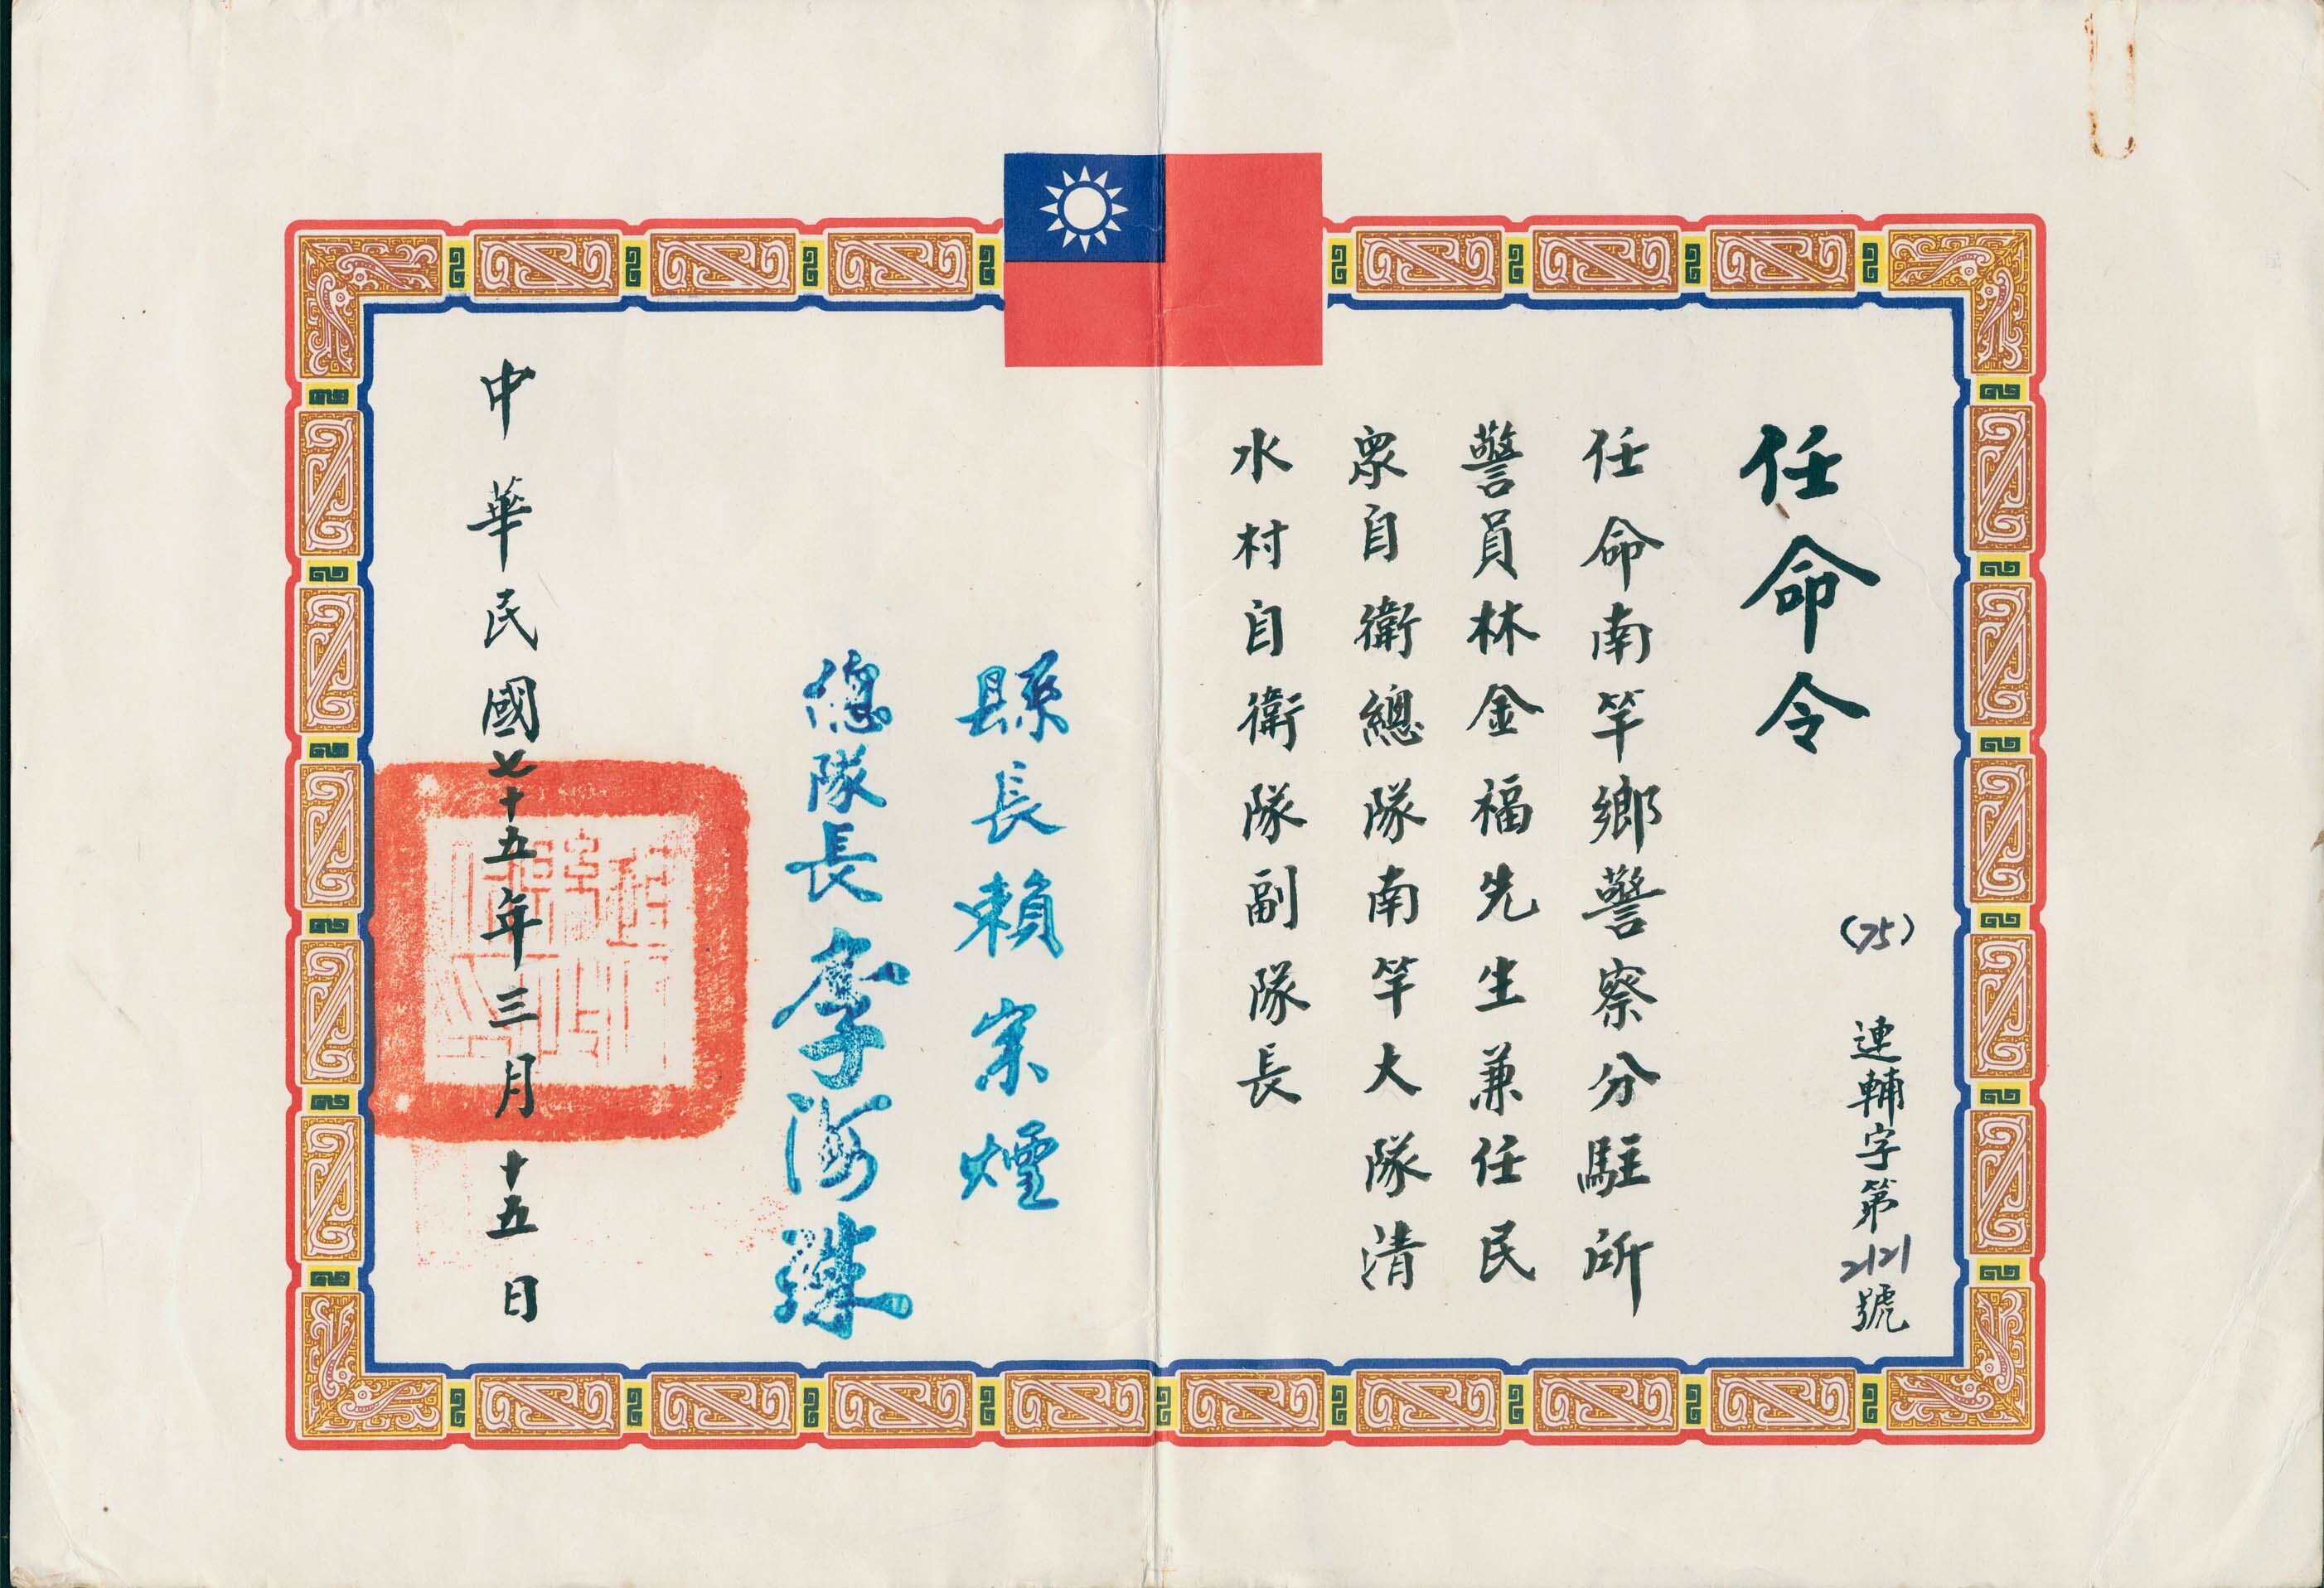 任命令
(75) 連輔字第2121號
任命南竿鄉警察分駐所
警員林金福先生兼任民
眾自衛總隊南竿大隊清
水村自衛隊副隊長
縣長賴宗煙
總隊長李海殊
中華民國七十五年三月十五日